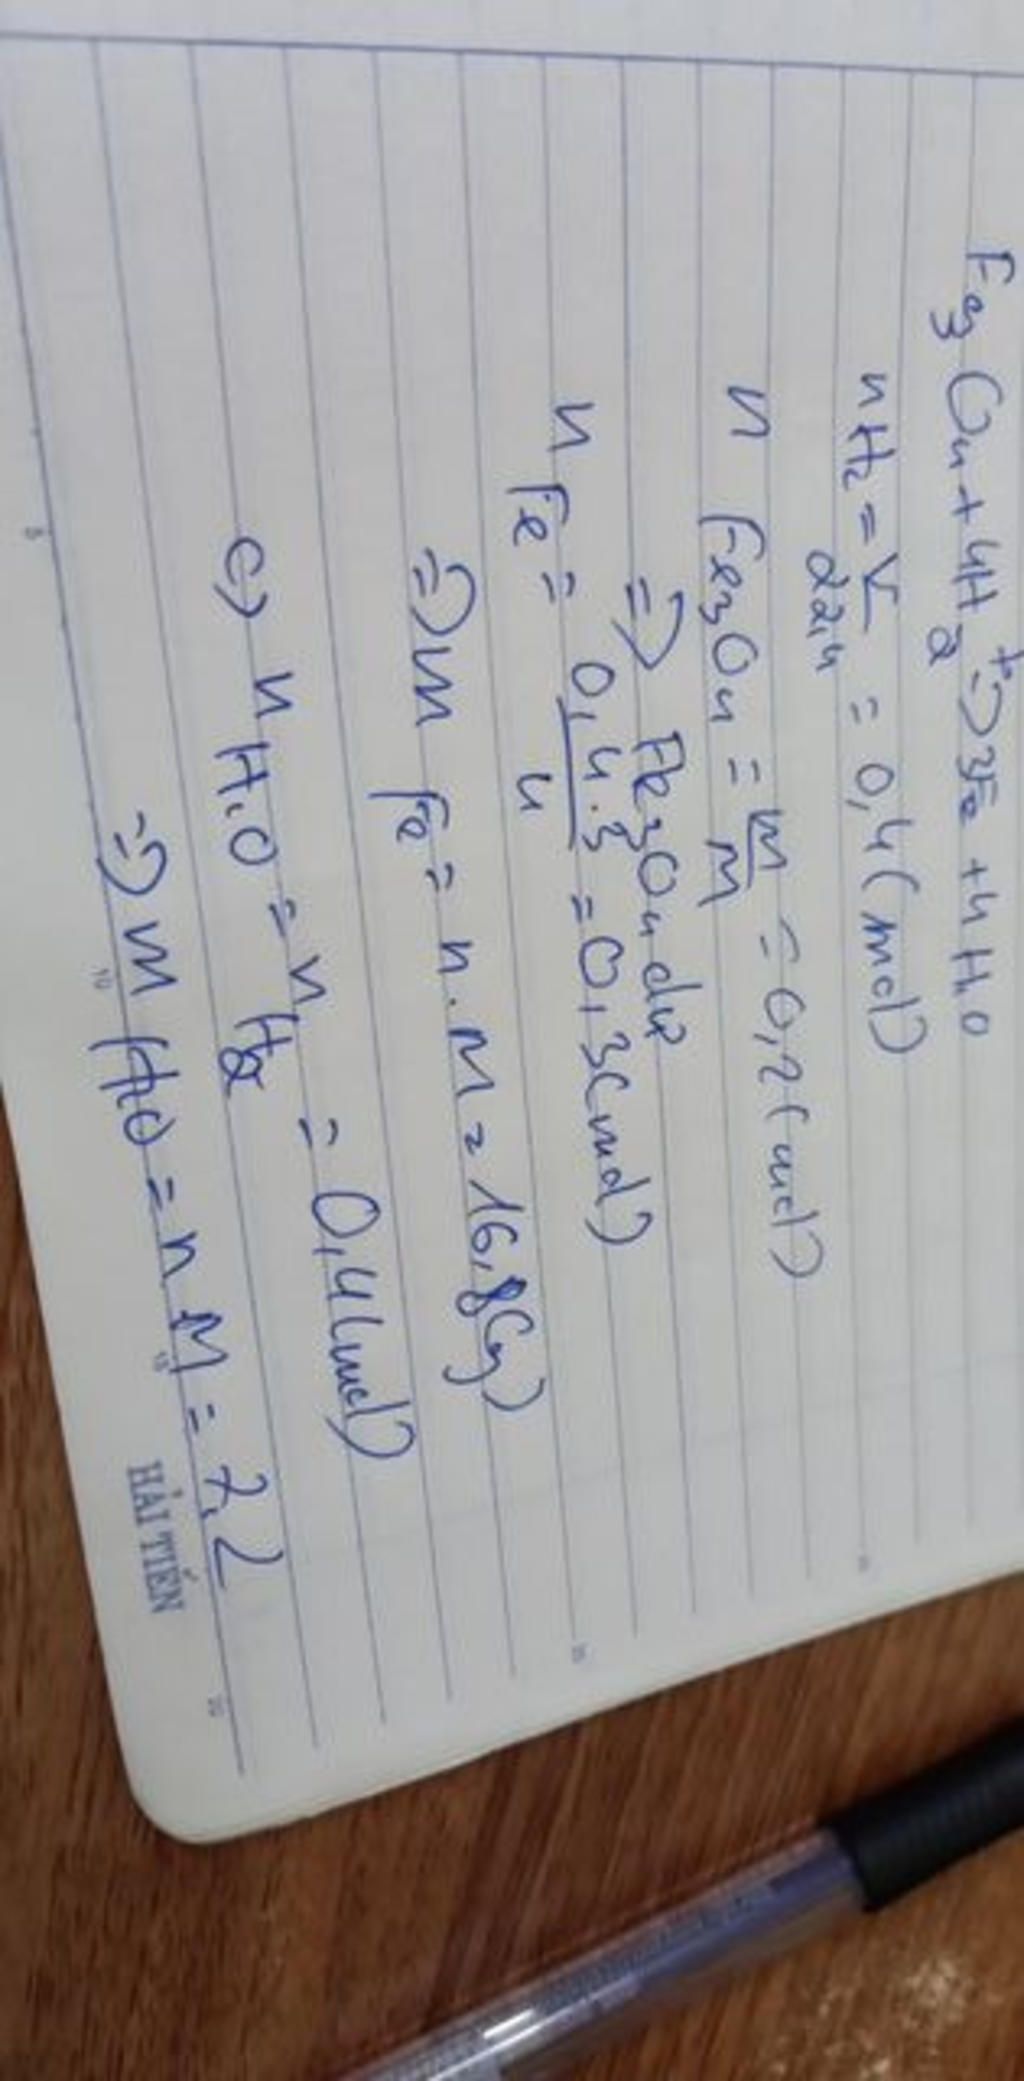 Fe3O4 + 4H2 t° => 3Fe + 4H2O
nH2 = V/22,4 = 0,4 (mol)
n Fe3O4 = m/M = 0,2 (mol)
=> Fe3O4 dư
n Fe = 0,4.3/4 = 0,3 (mol)
=> m Fe = n.M = 16,8 (g)
c) n H2O = n H2 = 0,4 (mol)
=> m H2O = n M = 7,2
HẢI TIẾN